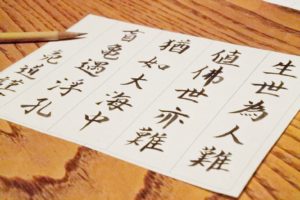 生世為人難
值佛世亦難
猶如大海中
盲龜遇浮孔